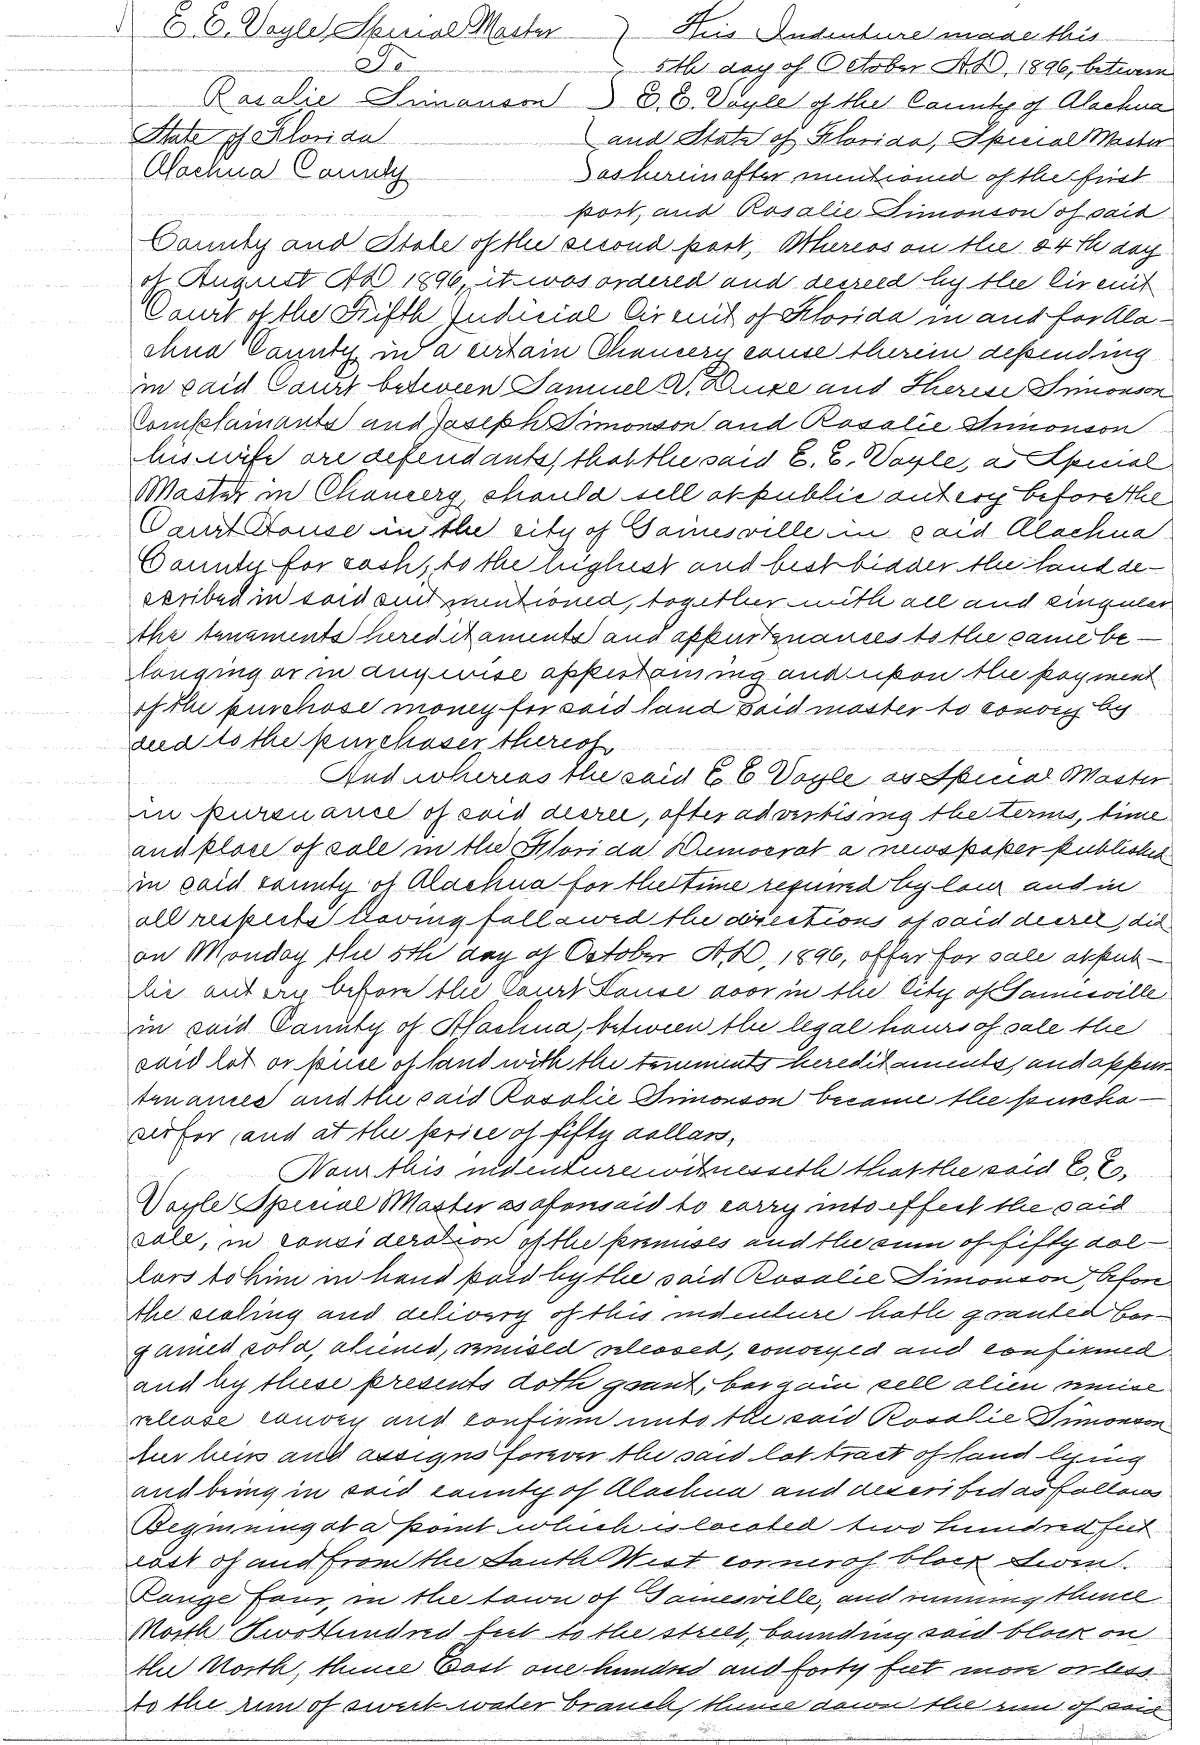 E. E. Voyle, Special Master
To
Rosalie Simonson
State of Florida
Alachua County
This Indenture made this
5th day of October A.D. 1896, between
E. E. Voyle of the County of Alachua
and State of Florida, Special Master
as hereinafter mentioned of the first
part, and Rosalie Simonson of said
County and State of the second part, Whereas on the 24th day
of August AD 1896, it was ordered and decreed by the Circuit
Court of the Fifth Judicial Circuit of Florida in and for Ala-
chua County in a certain Chancery cause therein depending
in said Court between Samuel V. and Therese Simonson
Complainants and Joseph Simonson and Rosalie Simonson
his wife are defendants, that the said E. E. Voyle, as Special
Master in Chancery, should sell at public outcry before the
Court House in the city of Gainesville in said Alachua
County for cash, to the highest and best bidder the land de-
scribed in said suit mentioned, together with all and singular
the tenements hereditaments and appurtenances to the same be-
longing or in anywise appertaining and upon the payment
of the purchase money for said land said master to convey by
deed to the purchaser thereof,
And whereas the said E E Voyle as Special Master
in pursuance of said decree, after advertising the terms, time
and place of sale in the Florida Democrat a newspaper published
in said county of Alachua for the time required by law and in
all respects having followed the directions of said decree, did
on Monday the 5th day of October A.D. 1896, offer for sale at pub-
lic outcry before the Court House door in the City of Gainesville
in said County of Alachua, between the legal hours of sale the
said lot or piece of land with the tenements hereditaments, and appur-
tenances and the said Rosalie Simonson became the purcha-
ser for, and at the price of fifty dollars,
Now this indenture witnesseth that the said E. E.
Voyle Special Master as aforesaid to carry into effect the said
sale, in consideration of the premises and the sum of fifty dol-
lars to him in hand paid by the said Rosalie Simonson, before
the sealing and delivery of this indenture hath granted bar-
gained sold, aliened, remised released, conveyed and confirmed
and by these presents doth grant, bargain sell alien remise
release convey and confirm unto the said Rosalie Simonson
her heirs and assigns forever the said lot tract of land lying
and being in said county of Alachua and described as follows
Beginning at a point which is located two hundred feet
east of and from the South West corner of block Seven.
Range four, in the town of Gainesville, and running thence
North Two Hundred feet to the street, bounding said block on
the North, thence East one hundred and forty feet more or less
to the run of sweet water branch, thence down the run of said